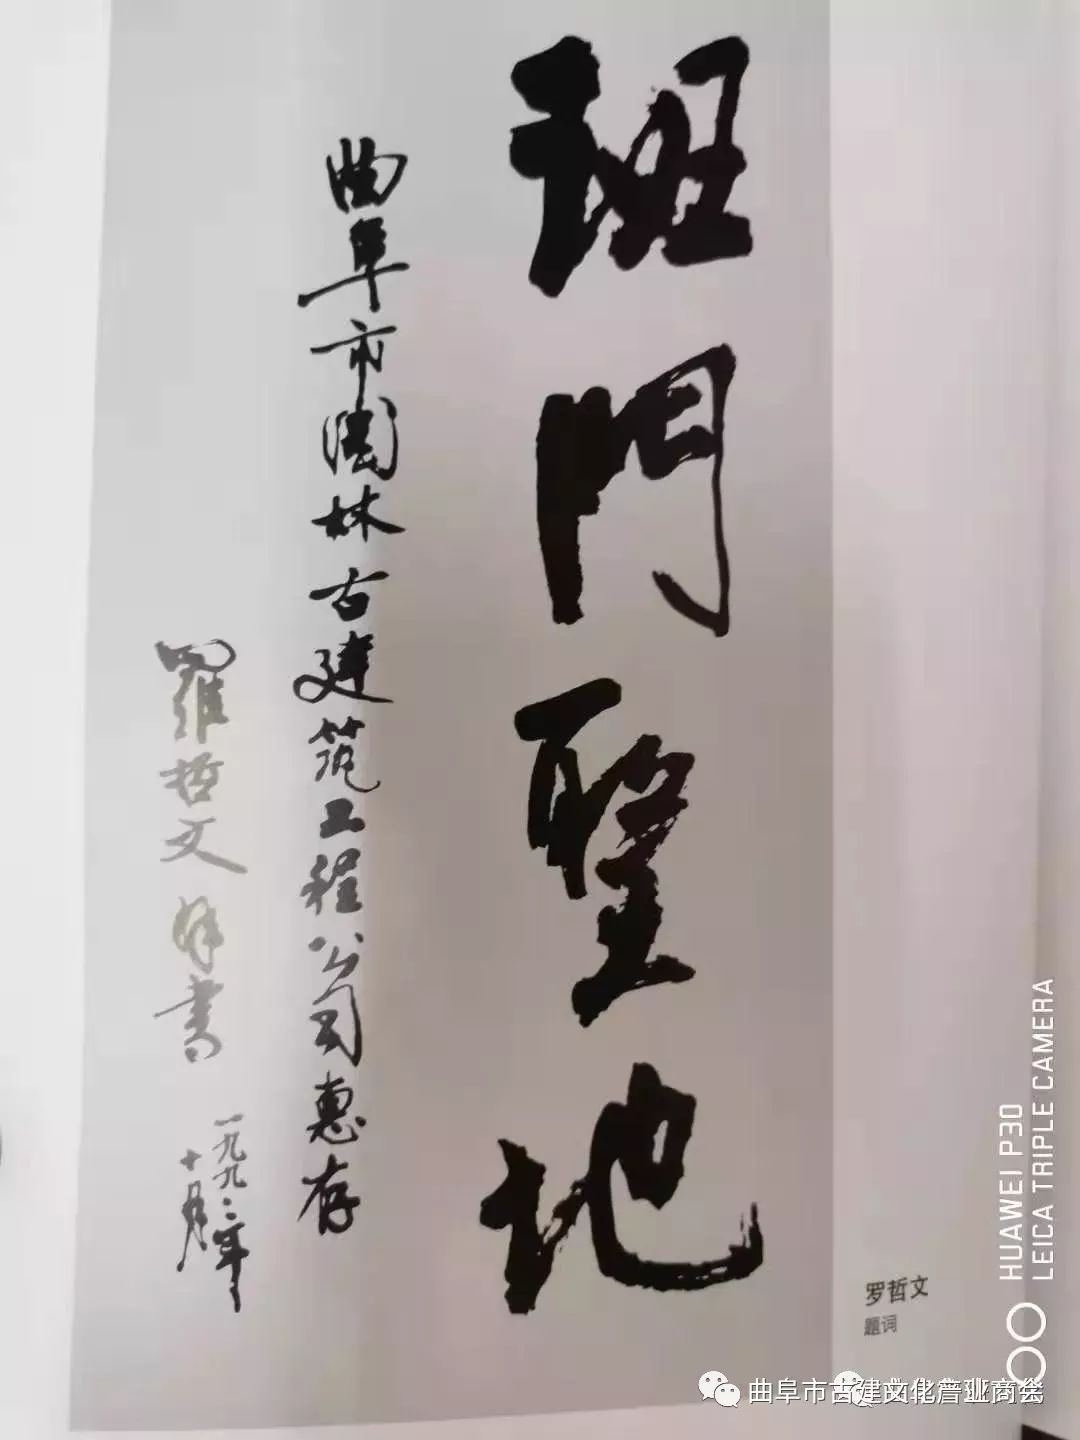 班門聖地
曲阜市園林古建筑工程公司惠存
羅哲文拜書
一九九二年
十月
罗哲文
题词
HUAWEI P30
LEICA TRIPLE CAMERA
曲阜市古建文化产业商会